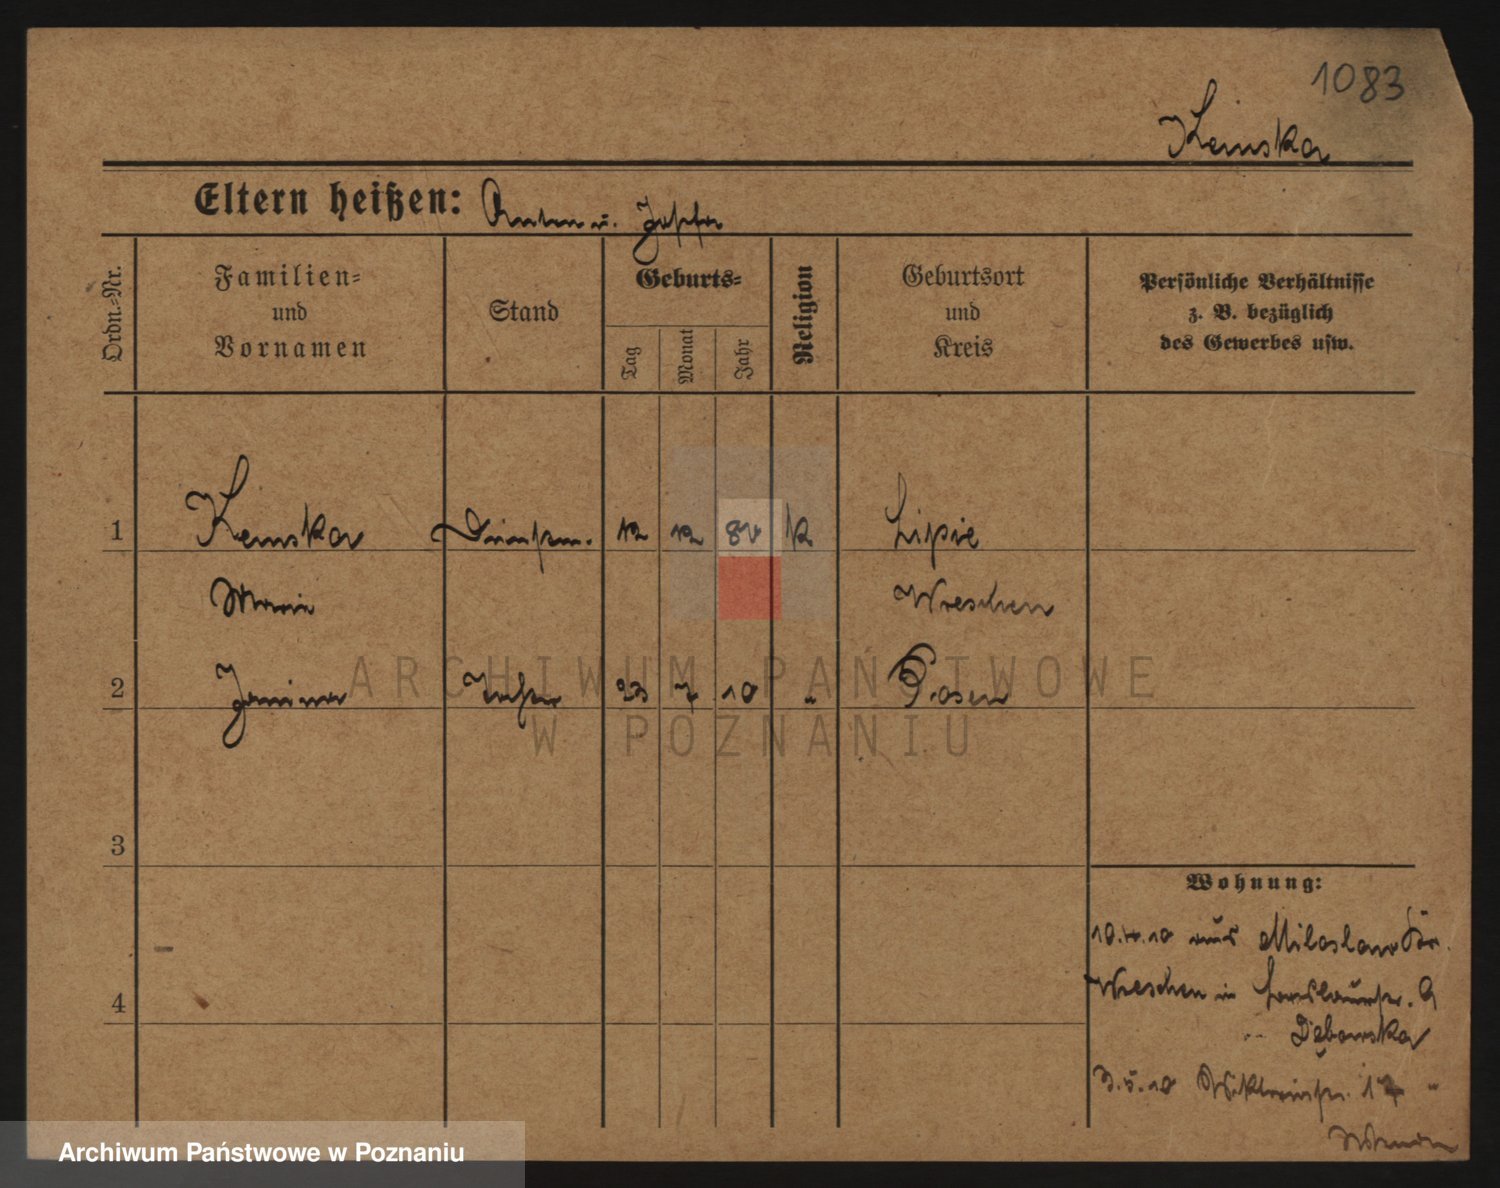 1083
Kemska
Eltern heißen: Anton u. Josefa
Ordn.-Nr.
Familien-
und
Vornamen
Stand
Geburts-
Tag
Monat
Jahr
Religion
Geburtsort
und
Kreis
Persönliche Verhältnisse
z. B. bezüglich
des Gewerbes usw.
1 Kemska 12 12 k. Lipie
Marie Wreschen
2 Janina Tochter 23 7 10 " Posen
3
Wohnung:
10.4.10 aus Miloslaw Kr.
Wreschen in 9
Dębowska
4
3.5.10 Viktoriastr. 17 "
ARCHIWUM PAŃSTWOWE
W POZNANIU
Archiwum Państwowe w Poznaniu